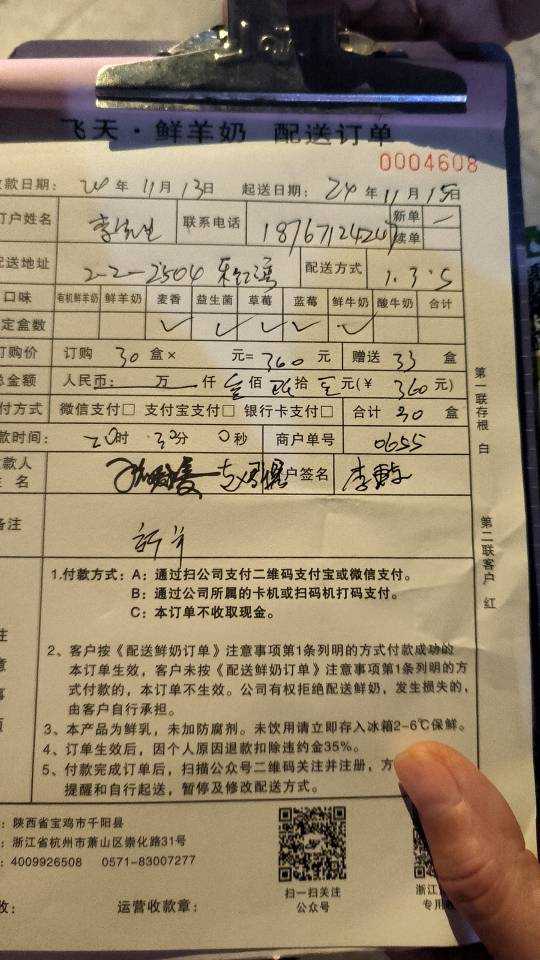 飞天·鲜羊奶 配送订单
0004608
收款日期: 24年11月13日 起送日期: 24年11月15日
订户姓名 联系电话 18767124247 新单 —
续单
配送地址 2-2-2504 配送方式 1.3.5
口味 有机鲜羊奶 鲜羊奶 麦香 益生菌 草莓 蓝莓 鲜牛奶 酸牛奶 合计
定盒数 ✓ ✓ ✓ ✓ ✓
订购价 订购 30 盒× 元=360元 赠送 33 盒
总金额 人民币: 万 仟 佰 拾 元(¥ 360元)
付方式 微信支付□ 支付宝支付□ 银行卡支付□ 合计 30 盒
款时间: 20时 30分 0秒 商户单号 0655
收款人
姓名 户签名
备注
1.付款方式: A: 通过扫公司支付二维码支付宝或微信支付。
B: 通过公司所属的卡机或扫码机打码支付。
C: 本订单不收取现金。
2、客户按《配送鲜奶订单》注意事项第1条列明的方式付款成功的
本订单生效,客户未按《配送鲜奶订单》注意事项第1条列明的方
式付款的,本订单不生效。公司有权拒绝配送鲜奶,发生损失的,
由客户自行承担。
3、本产品为鲜乳,未加防腐剂。未饮用请立即存入冰箱2-6℃保鲜。
4、订单生效后,因个人原因退款扣除违约金35%。
5、付款完成订单后,扫描公众号二维码关注并注册,方
提醒和自行起送,暂停及修改配送方式。
注
意
事
项
第一联存根 白
第二联客户 红
: 陕西省宝鸡市千阳县
: 浙江省杭州市萧山区崇化路31号
: 4009926508 0571-83007277
扫一扫关注
公众号
浙江
专用
收: 运营收款章: